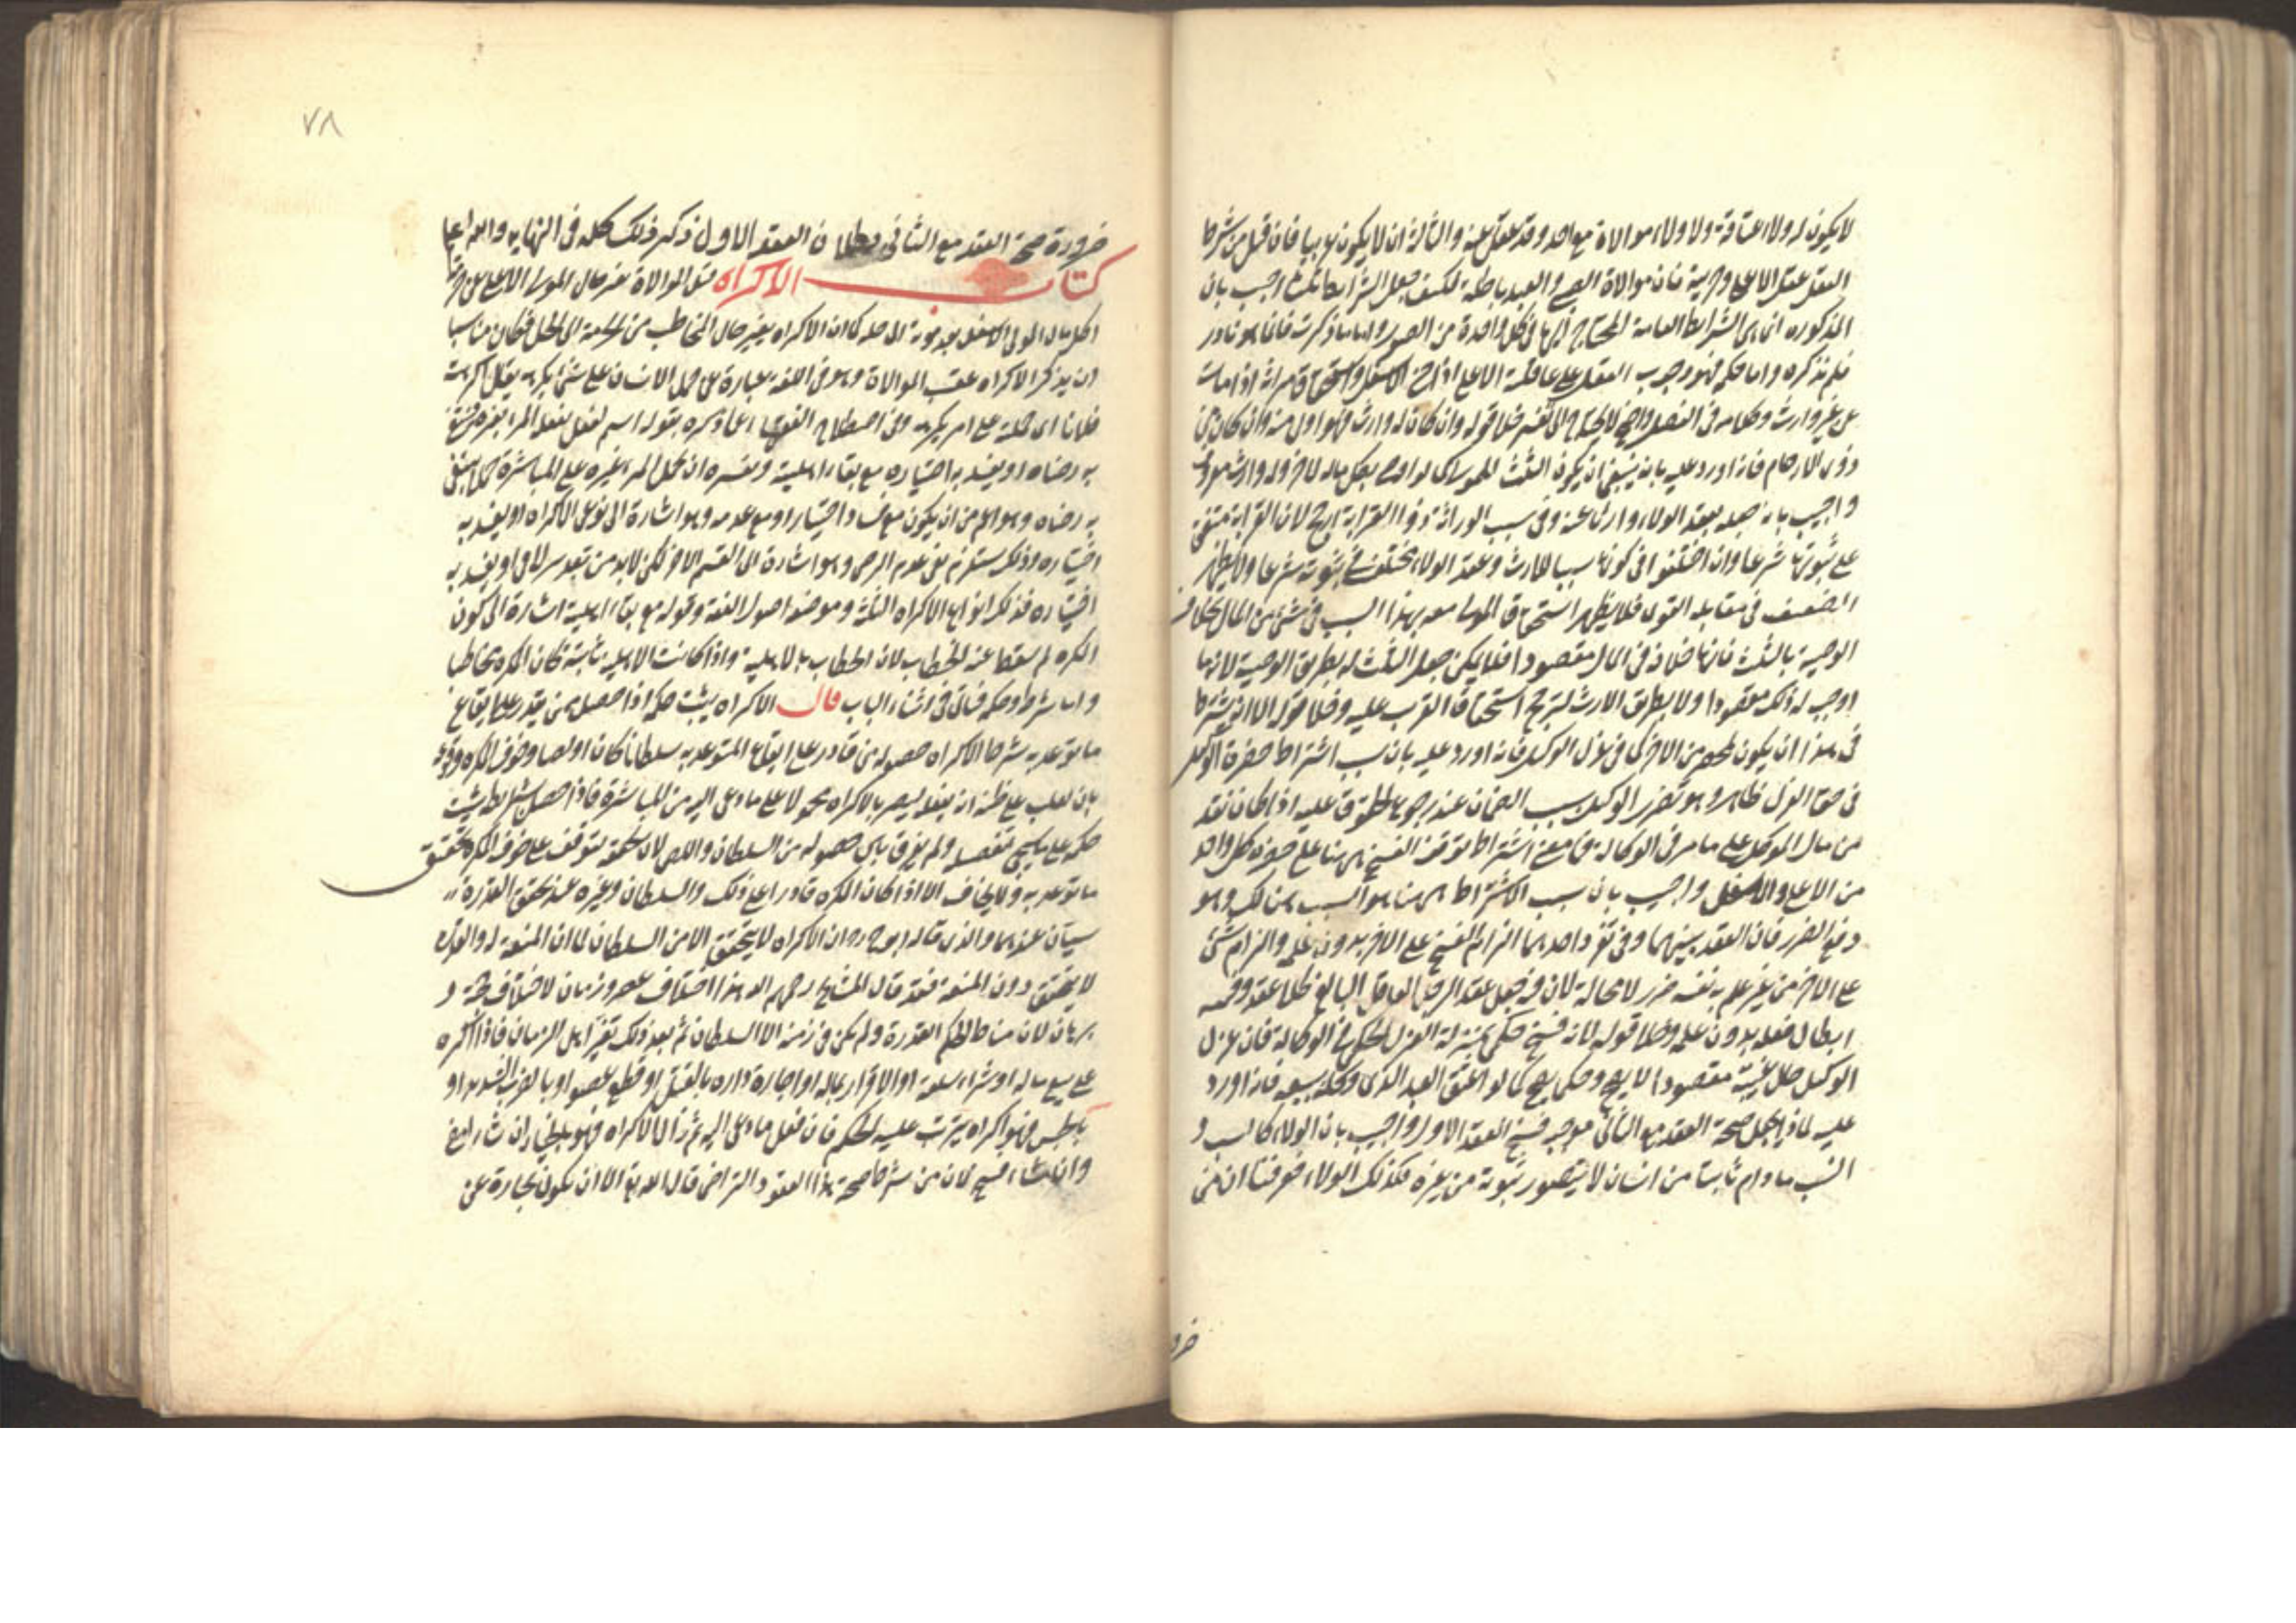 لا يكون له ولاء عتاقة ولا ولاء موالاة مع احد وقد عقل عنه والثالث ان لا يكون عربيا فان قيل من شرط
العقل عقل الاعلى وحريته فان موالاة الصبي والعبد باطلة فكيف جعل الشرائط ثلثا اجيب بان
المذكورة انما هى الشرائط العامة المحتاج اليها فى كل واحدة من الصور واما ما ذكرت فانما هو نادر
فلم يذكره واما حكمه فهو وجوب العقل على عاقلة الاعلى اذا جنى الاسفل واستحقاق ميراثه اذا مات
عن غير وارث وكلامه فى الفصل واضح لا يحتاج الى تفسير خلا قوله وان كان له وارث فهو اولى منه وان كان من
ذوى الارحام فانه اورد عليه بانه ينبغى ان يكون الثلث للمولى كما لو اوصى بكل ماله لآخر وله وارث معروف
واجيب بانه جعله بعقد الولاء وارثا عنه وفى سبب الوراثة ذو القرابة ارجح لان القرابة متفق
على ثبوتها شرعا وان اختلفوا فى كونها سببا للارث وعقد الولاء مختلف فى ثبوته شرعا ولا يظهر
الضعيف فى مقابلة القوى فلا يظهر استحقاق المولى معه بهذا السبب فى شئ من المال بخلاف
الوصية بالثلث فانها خلافة فى المال مقصودا فلا يمكن جعل الثلث له بطريق الوصية لانه ما
اوجب له ذلك مقصودا ولا بطريق الارث لترجح استحقاق القريب عليه وخلا قوله الا انه يشترط
فى هذا ان يكون بمحضر من الاخر كما فى عزل الوكيل فانه اورد عليه بان سبب اشتراط حضرة الوكيل
فى حق العزل ظاهر وهو تضرر الوكيل بسبب الضمان عند رجوع الحقوق عليه اذا كان نقد
من مال الموكل على ما مر فى الوكالة فما معنى اشتراط توقف الفسخ ههنا على حضرة كل واحد
من الاعلى والاسفل واجيب بان سبب الاشتراط ههنا هو السبب هنالك وهو
دفع الضرر فان العقد بينهما وفى تفرد احدهما الزام الفسخ على الاخر بدون علمه والزام شئ
على الاخر من غير علم به نفسه ضرر لا محالة لان فيه جعل عقد الرجل العاقل البالغ كلا عقد وفيه
ابطال فعله بدون علمه وخلا قوله لانه فسخ حكمى بمنزلة العزل الحكمى فى الوكالة فان عزل
الوكيل حال غيبته مقصودا لا يصح وحكمى يصح كما لو اعتق العبد الذى وكله ببيعه فانه اورد
عليه لماذا يجعل صحة العقد مع الثانى موجب فسخ العقد الاول واجيب بان الولاء كالنسب و
النسب ما دام ثابتا من انسان لا يتصور ثبوته من غيره فكذلك الولاء فعرفنا ان من
ضرو
٧٨
ضرورة صحة العقد مع الثانى بطلان العقد الاول ذكر ذلك كله فى النهاية والله اعلم
كتاب الاكراه قيل الموالاة تغير حال المولى الاعلى عن حرمة
اكل مال المولى الاسفل بعد موته الى حله كما ان الاكراه يغير حال المخاطب من الحرمة الى الحل فكان مناسبا
ان يذكر الاكراه عقيب الموالاة وهو فى اللغة عبارة عن حمل الانسان على شئ يكرهه يقال اكرهت
فلانا اى حملته على امر يكرهه وفى اصطلاح الفقهاء ما ذكره بقوله اسم لفعل يفعله المرء بغيره فينتفى
به رضاه او يفسد به اختياره مع بقاء اهليته وتفسيره ان يحمل المرء غيره على المباشرة حملا ينتفى
به رضاه وهو اعم من ان يكون مع فساد اختيار او مع عدمه وهو اشارة الى نوعى الاكراه او يفسد به
اختياره وذلك يستلزم نفى عدم الرضى وهو اشارة الى القسم الاخر لكن لا بد من تقدير لما فى او يفسد به
اختياره فذكر انواع الاكراه الثلثة وموضعه اصول الفقه وقوله مع بقاء اهليته اشارة الى كون
المكره لم يسقط عنه الخطاب لان الخطاب بالاهلية واذا كانت الاهلية ثابتة كان المكره مخاطبا
واما شرطه وحكمه فيأتى فى اثناء الباب قال الاكراه يثبت حكمه اذا حصل ممن يقدر على ايقاع
ما توعد به شرط الاكراه حصوله من قادر على ايقاع المتوعد به سلطانا كان او لصا وخوف المكره وقوعه
بان يغلب على ظنه انه يفعله ليصير بالاكراه محمولا على ما دعى اليه من المباشرة فاذا حصل شرائطه يثبت
حكمه على ما يجئ مفصلا ولم يفرق بين حصوله من السلطان واللص لان تحققه يتوقف على خوف المكره تحقيق
ما توعد به ولا يخاف الا اذا كان المكره قادرا على ذلك والسلطان وغيره عند تحقق القدرة
سيان عندهما والذى قاله ابو ح رح ان الاكراه لا يتحقق الا من السلطان لما ان المنعة له والقدرة
لا يتحقق دون المنعة فقد قال المشايخ رحمهم الله هذا اختلاف عصر وزمان لا اختلاف حجة و
برهان لان مناط الحكم القدرة ولم يكن فى زمنه الا السلطان ثم بعد ذلك تغير اهل الزمان فاذا اكره
على بيع ماله او شراء سلعة او الاقرار بماله او اجارة داره بالقتل او قطع عضو او بالضرب الشديد او
بالحبس فهو اكراه يترتب عليه الحكم فان فعل ما دعى اليه ثم زال الاكراه فهو بالخيار ان شاء امضى
وان شاء فسخ لان من شرط صحة هذا العقود التراضى قال الله تع الا ان تكون تجارة عن